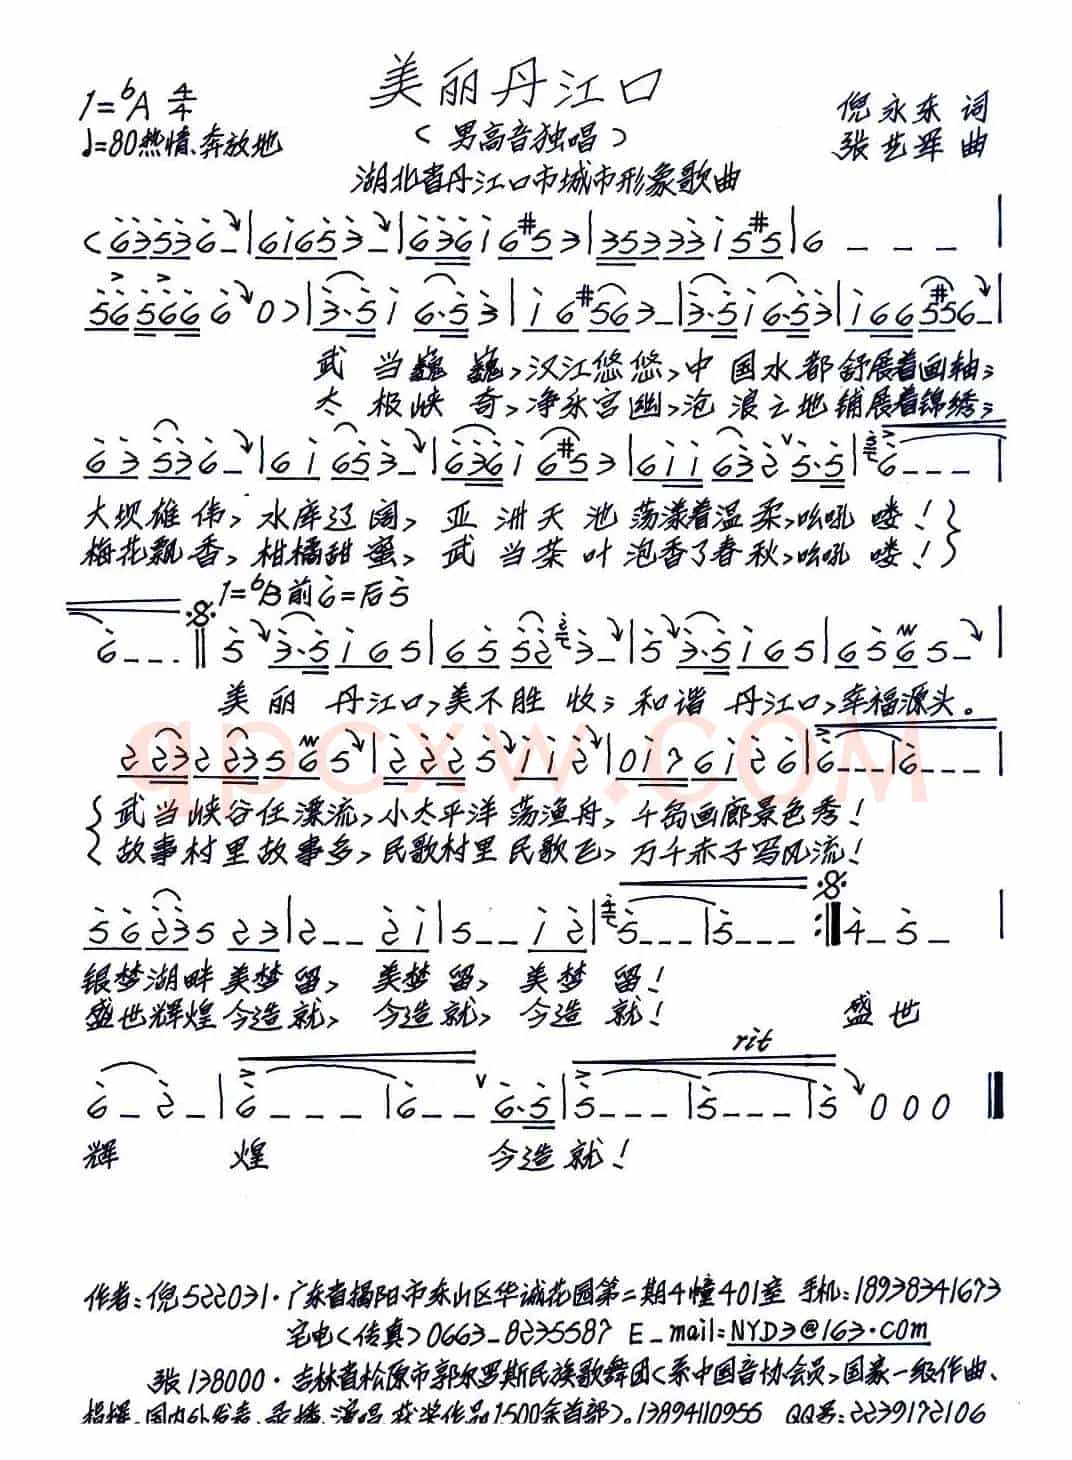 美丽丹江口
1=♭A 4/4
(男高音独唱)
倪永东 词
♩=80热情、奔放地
张艺军 曲
湖北省丹江口市城市形象歌曲
武当巍巍,汉江悠悠,中国水都舒展着画轴;
太极峡奇,净乐宫幽,沧浪之地铺展着锦绣;
大坝雄伟,水库辽阔,亚洲天池荡漾着温柔,吆吼喽!
梅花飘香,柑橘甜蜜,武当茶叶泡香了春秋,吆吼喽!
1=♭B前6=后5
美丽丹江口,美不胜收;和谐丹江口,幸福源头。
qpcxw.com
武当峡谷任漂流,小太平洋荡渔舟,千岛画廊景色秀!
故事村里故事多,民歌村里民歌飞,万千赤子写风流!
银梦湖畔美梦留,美梦留,美梦留!
盛世辉煌今造就,今造就,今造就! 盛世
rit
辉煌 今造就!
作者:倪522031·广东省揭阳市东山区华诚花园第二期4幢401室 手机:18938341673
宅电(传真)0663-8235587 E-mail:NYD3@163.com
张138000·吉林省松原市郭尔罗斯民族歌舞团(系中国音协会员,国家一级作曲、
指挥、国内外发表、录播、演唱、获奖作品1500余首部)。13894110955 QQ号:2239172106